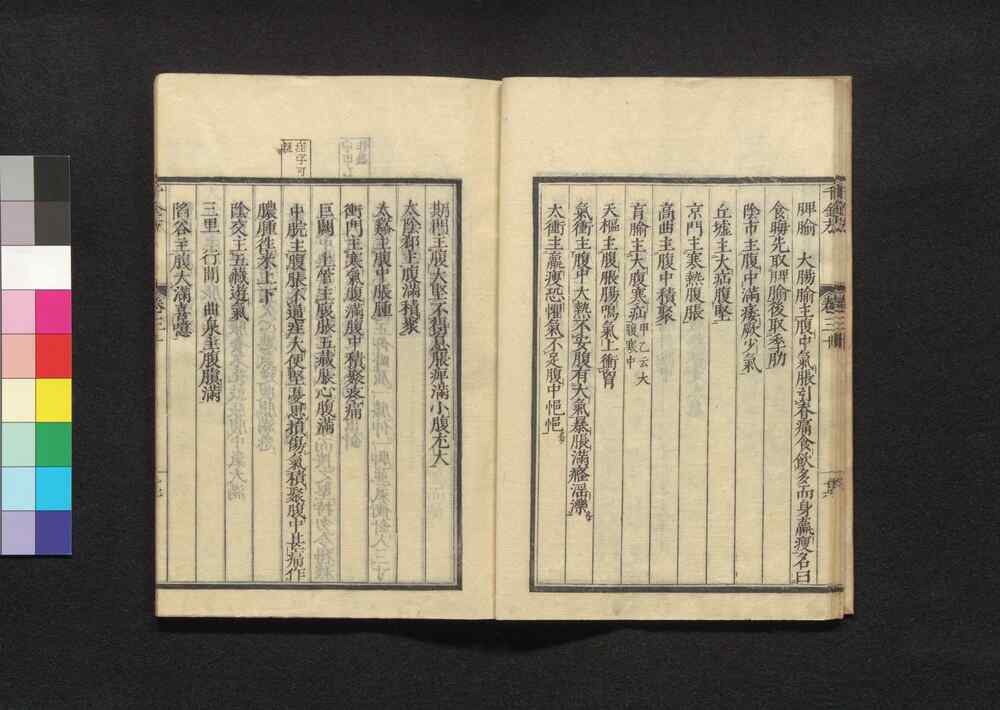 脾腧　大腸腧主腹中氣脹引脊痛食飲多而身羸瘦名曰
食晦先取脾腧後取季肋
陰市主腹中滿痿厥少氣
丘墟主大疝腹堅
京門主寒熱腹脹
高曲主腹中積聚
肓腧主大腹寒疝甲乙云大腹寒中
天樞主腹脹腸鳴氣上衝胷
氣衝主腹中大熱不安腹有大氣暴脹滿癃淫濼
太衝主羸瘦恐懼氣不足腹中悒悒
期門主腹大堅不得息脹痺滿小腹尤大
太陰郄主腹滿積聚
太谿主腹中脹腫
衝門主寒氣腹滿腹中積聚疼痛
巨闕 上管主腹脹五藏脹心腹滿
中脘主腹脹不通疰大便堅憂思損傷氣積聚腹中甚痛作
膿腫往來上下
陰交主五藏遊氣
三里 行間 曲泉主腹䐜滿
陷谷主腹大滿喜噫
疰字可
卷三十